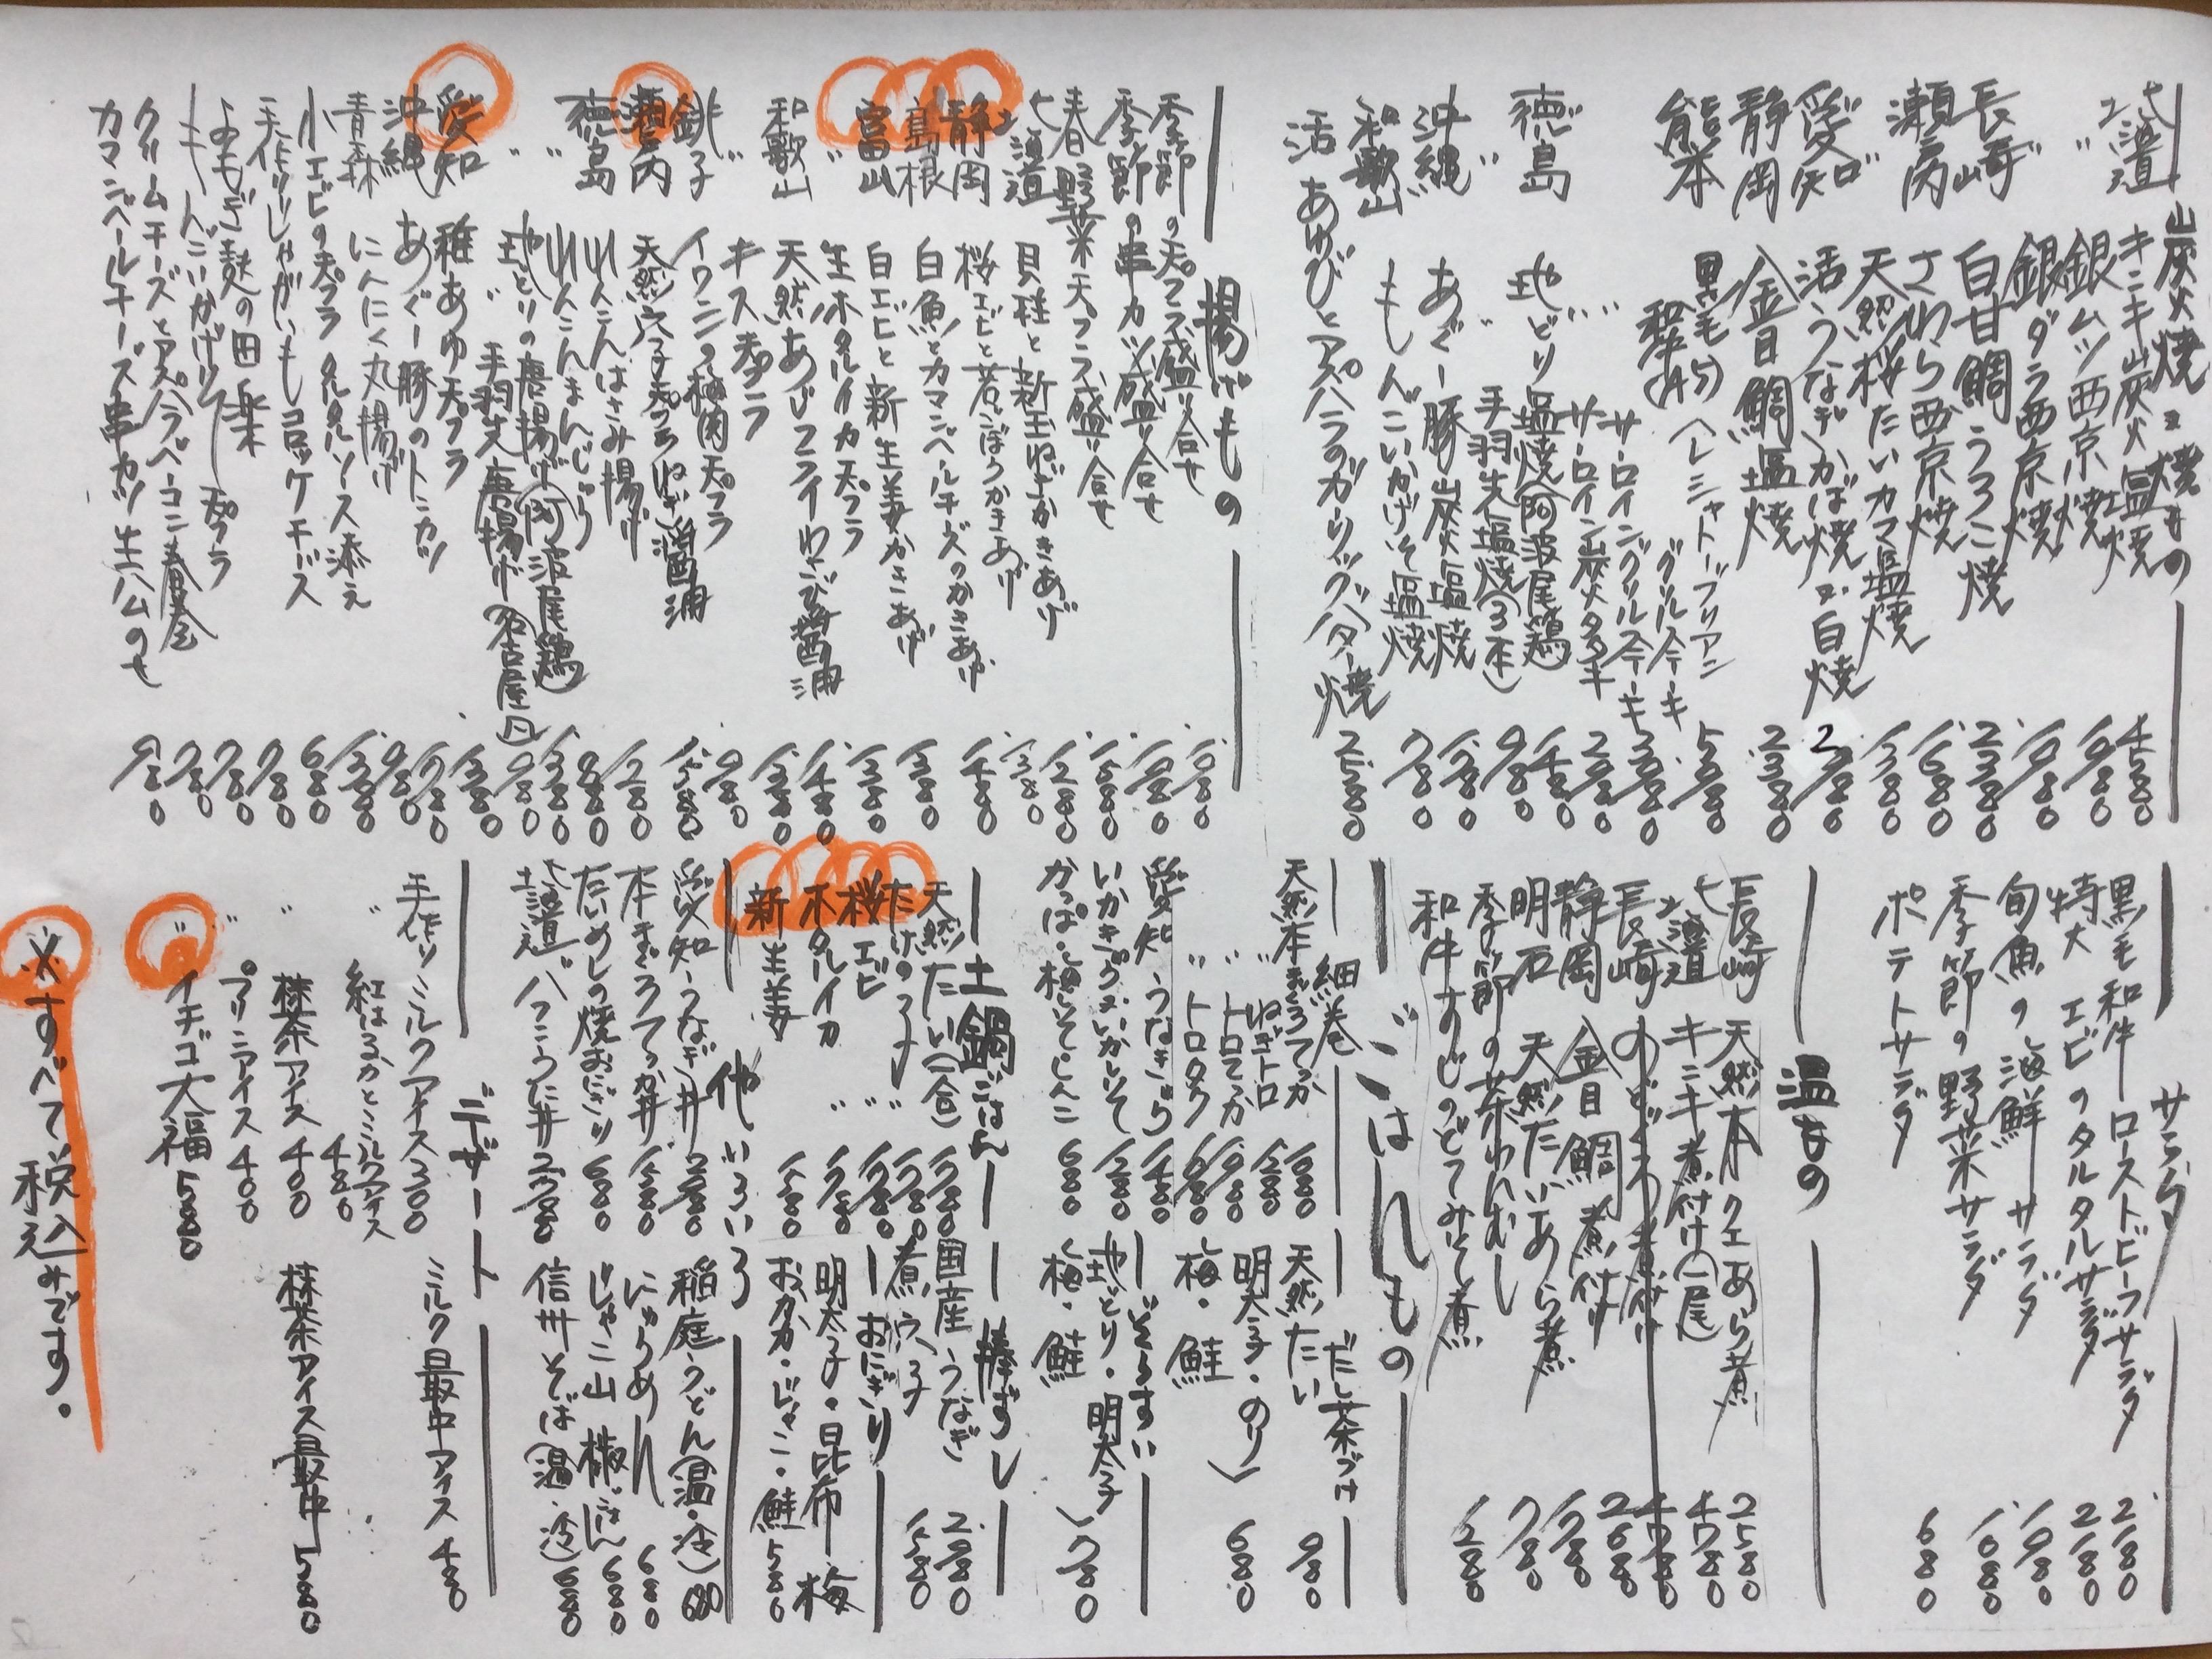 炭火焼又焼もの
北海道 キンキ炭火塩焼 4580
〃 銀ムツ西京焼 1980
銀ダラ西京焼 1980
長崎 白甘鯛うろこ焼 2380
〃 さわら西京焼 1680
瀬戸内 天然桜たいカマ塩焼 1380
愛知 活うなぎかば焼又白焼
静岡 金目鯛塩焼 2380
熊本 黒毛和牛(A5) ヘレシャトーブリアン
グリルステーキ 5980
サーロイングリルステーキ
サーロイン炭火タタキ
徳島 地どり塩焼(阿波尾鶏) 1480
〃 手羽先塩焼(3本) 980
沖縄 あぐー豚炭火塩焼
和歌山 もんごいかげそ塩焼 780
活あわびとアスパラのガーリックバター焼 2580
揚げもの
季節の天プラ盛り合せ
季節の串カツ盛り合せ
春野菜天プラ盛り合せ
北海道 貝柱と新玉ねぎかきあげ
静岡 桜エビと若ごぼうかきあげ
島根 白魚とカマンベールチーズのかきあげ
富山 白エビと新生姜かきあげ
〃 生ホタルイカ天プラ
和歌山 天然あじフライわさび醤油
〃 キス天プラ
銚子 イワシの梅肉天プラ
瀬戸内 天然穴子天プラねぎ醤油
徳島 れんこんはさみ揚げ
〃 れんこんまんじゅう
〃 地とりの唐揚げ(阿波尾鶏)
〃 手羽先唐揚げ(名古屋風)
愛知 稚あゆ天プラ
沖縄 あぐー豚のトンカツ
青森 にんにく丸揚げ
小エビの天プラタルタルソース添え
手作りじゃがいもコロッケチーズ
よもぎ麸の田楽
もんごいかげそ天プラ
クリームチーズとアスパラベーコン春巻
カマンベールチーズ串カツ生ハムのせ 980
サラダ
黒毛和牛ローストビーフサラダ 2180
特大エビのタルタルサラダ 2180
旬魚の海鮮サラダ 1980
季節の野菜サラダ 1080
ポテトサラダ 680
温もの
長崎 天然本クエあら煮 2580
北海道 キンキ煮付け(一尾) 4780
長崎 のどくろ煮付け 4780
静岡 金目鯛煮付 2680
明石 天然たいあら煮 1780
季節の茶わんむし 780
和牛すじのどてみそ煮 1280
ごはんもの
細巻
天然本まぐろてっか 1680
〃 ねぎトロ 1280
〃 トロてっか 1980
〃 トロタク 1680
愛知 うなきゅう 1480
いかきゅう又いかしそ 1280
かっぱ・梅しそ・しんこ 680
だし茶づけ
天然たい 980
明太子・のり
梅・鮭 680
ぞうすい
地どり・明太子
梅・鮭 780
土鍋ごはん
天然たい(一合) 1780
たけのこ 〃 1780
桜エビ 〃 1780
ホタルイカ 〃 1780
新生姜 1580
棒ずし
国産うなぎ 2980
煮穴子 1580
おにぎり
明太子・昆布・梅
おかか・じゃこ・鮭 580
他いろいろ
愛知うなぎ丼 2980
本まぐろてっか丼
たいめしの焼おにぎり 680
北海道バフンうに丼
稲庭うどん(温・冷) 680
にゅうめん 680
じゃこ山椒ごはん 680
信州そば(温・冷) 680
デザート
手作りミルクアイス 300
〃 紅はるかとミルクアイス 480
〃 抹茶アイス 400
〃 プリンアイス 400
〃 イチゴ大福 580
ミルク最中アイス 480
抹茶アイス最中 580
※すべて税込みです。